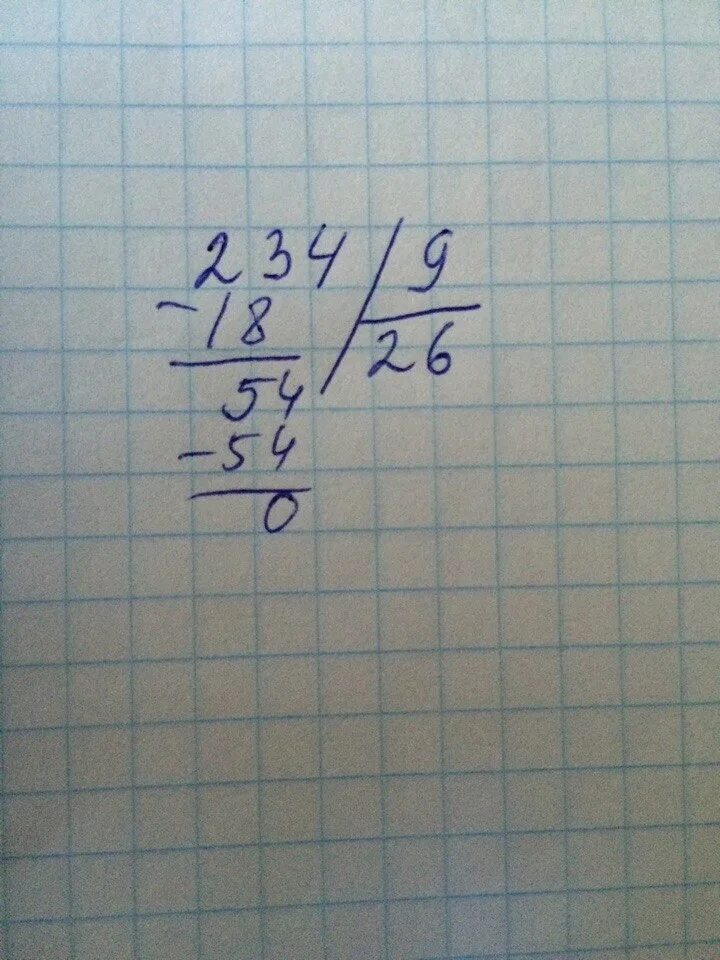 234 9
-18 26
54
-54
0